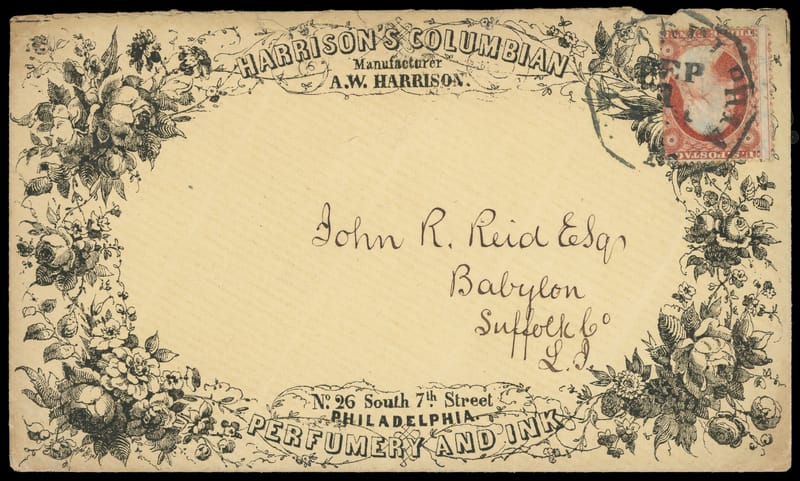 HARRISON'S COLUMBIAN
Manufacturer
A.W. HARRISON.
SEP
John R. Reid Esq
Babylon
Suffolk Co
L.I
No. 26 South 7th Street
PHILADELPHIA.
PERFUMERY AND INK